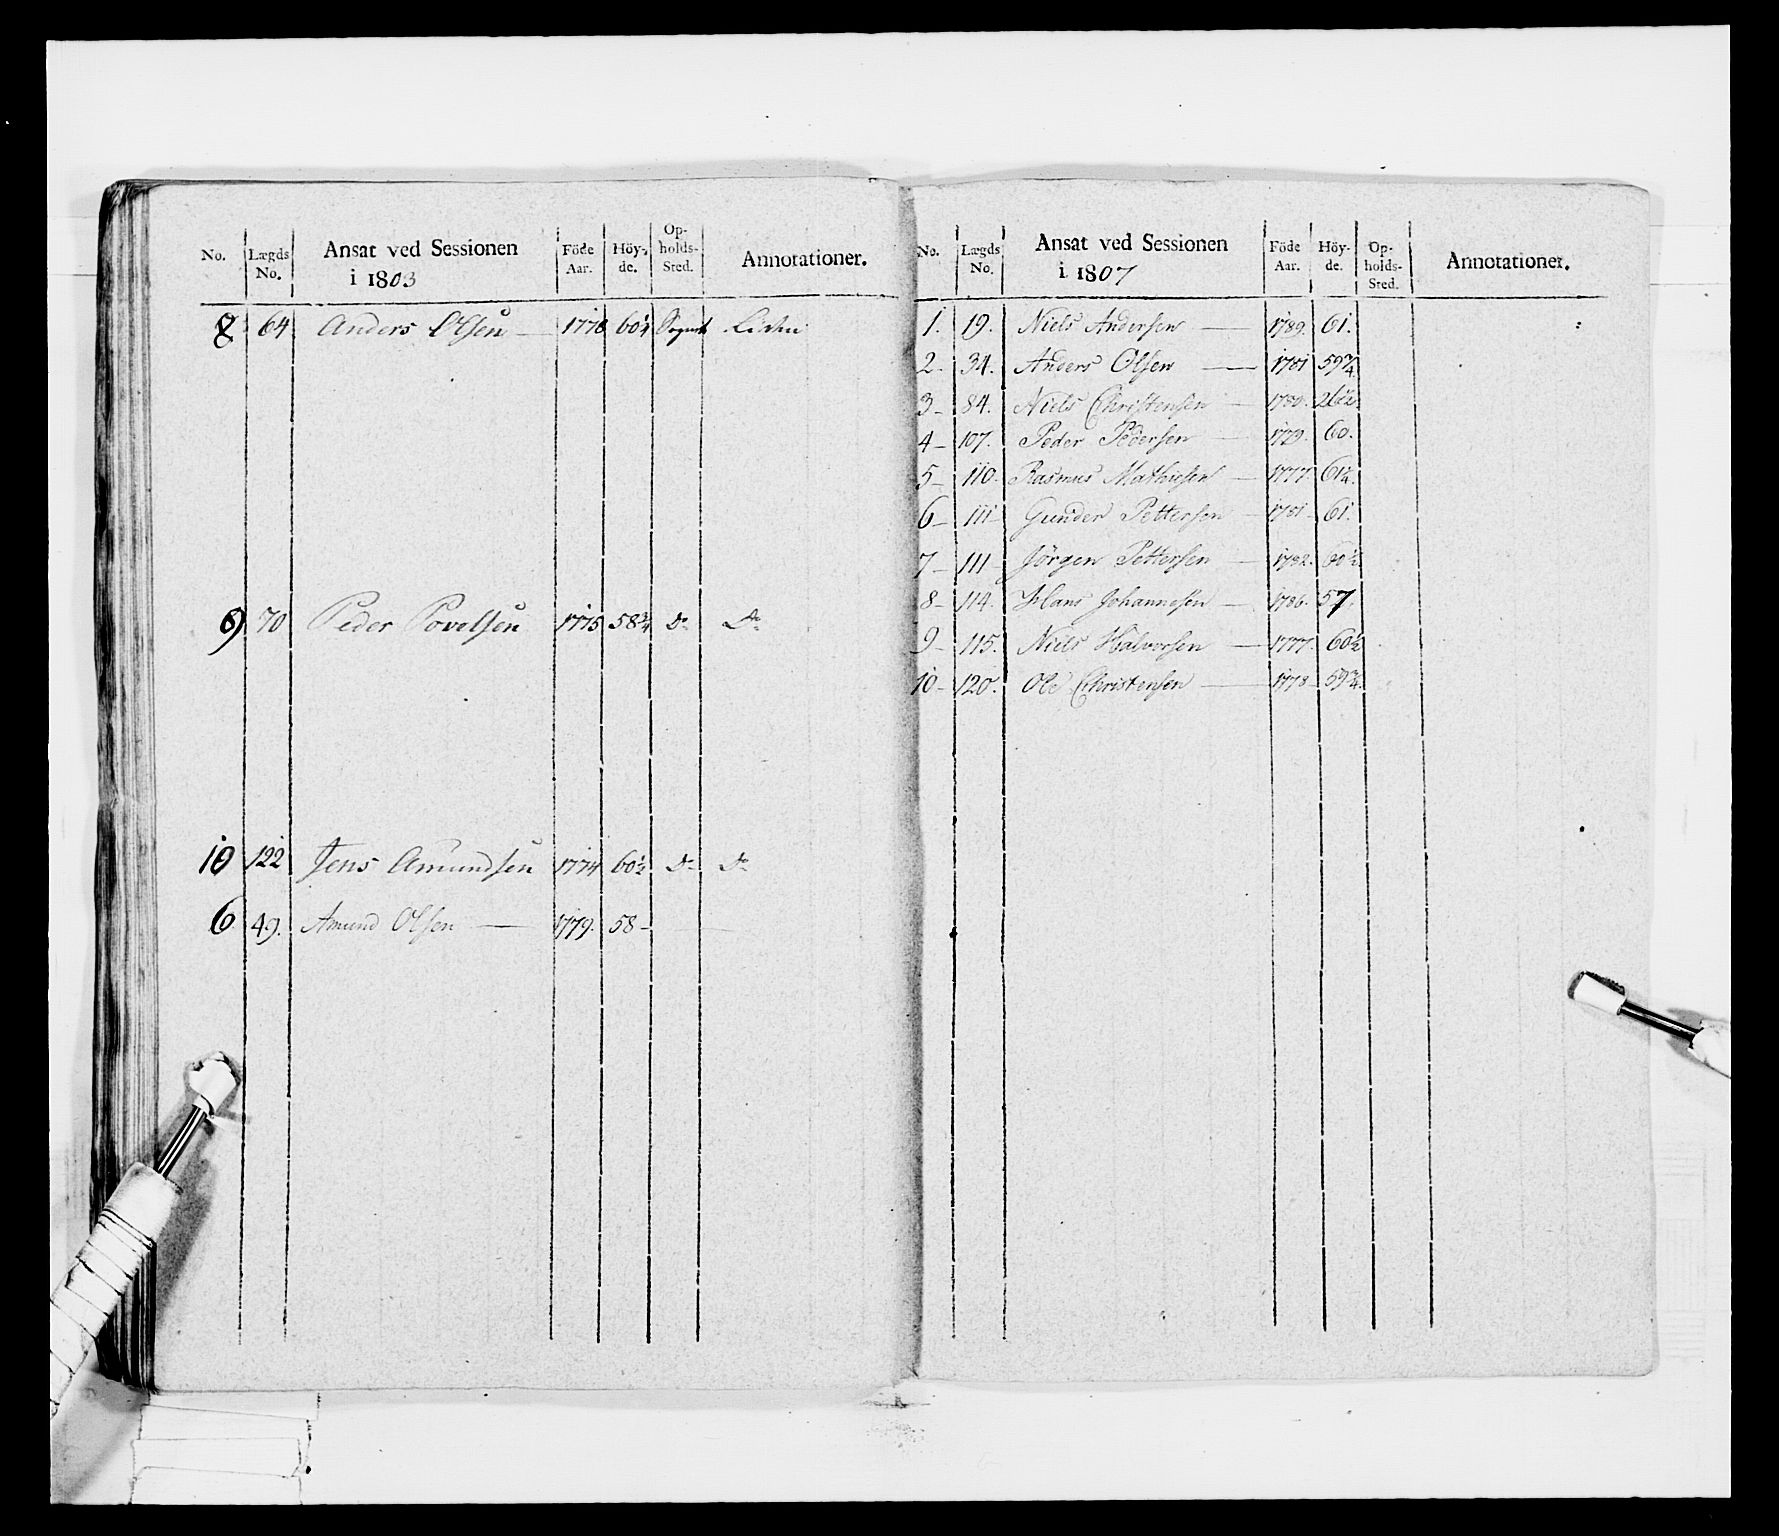 No. Lægds No. Ansat ved Sessionen i 1803 Föde Aar. Höy-de. Op-holds-Sted. Annotationer.
8 64 Anders Olsen 1778 60¼
9 70 Peder Povelsen 1775 58¾ Do Do
10 122 Jens Amundsen 1774 60½ Do Do
6 49. Amund Olsen 1779. 58
No. Lægds No. Ansat ved Sessionen i 1807 Föde Aar. Höy-de. Op-holds-Sted. Annotationer.
1. 19. Niels Andersen 1789. 61.
2 34. Anders Olsen 1781 59¾
3 84. Niels Christensen 1780.
4 107. Peder Pedersen 1779. 60.
5 110. Rasmus Mathiesen 1777. 61¼.
6 111 Gunder Pettersen 1781 61.
7 111 Jörgen Pettersen 1782. 60½
8 114. Hans Johannesen 1786. 57.
9 115. Niels Halvorsen 1777. 60½
10 120. Ole Christensen 1778 59¾.